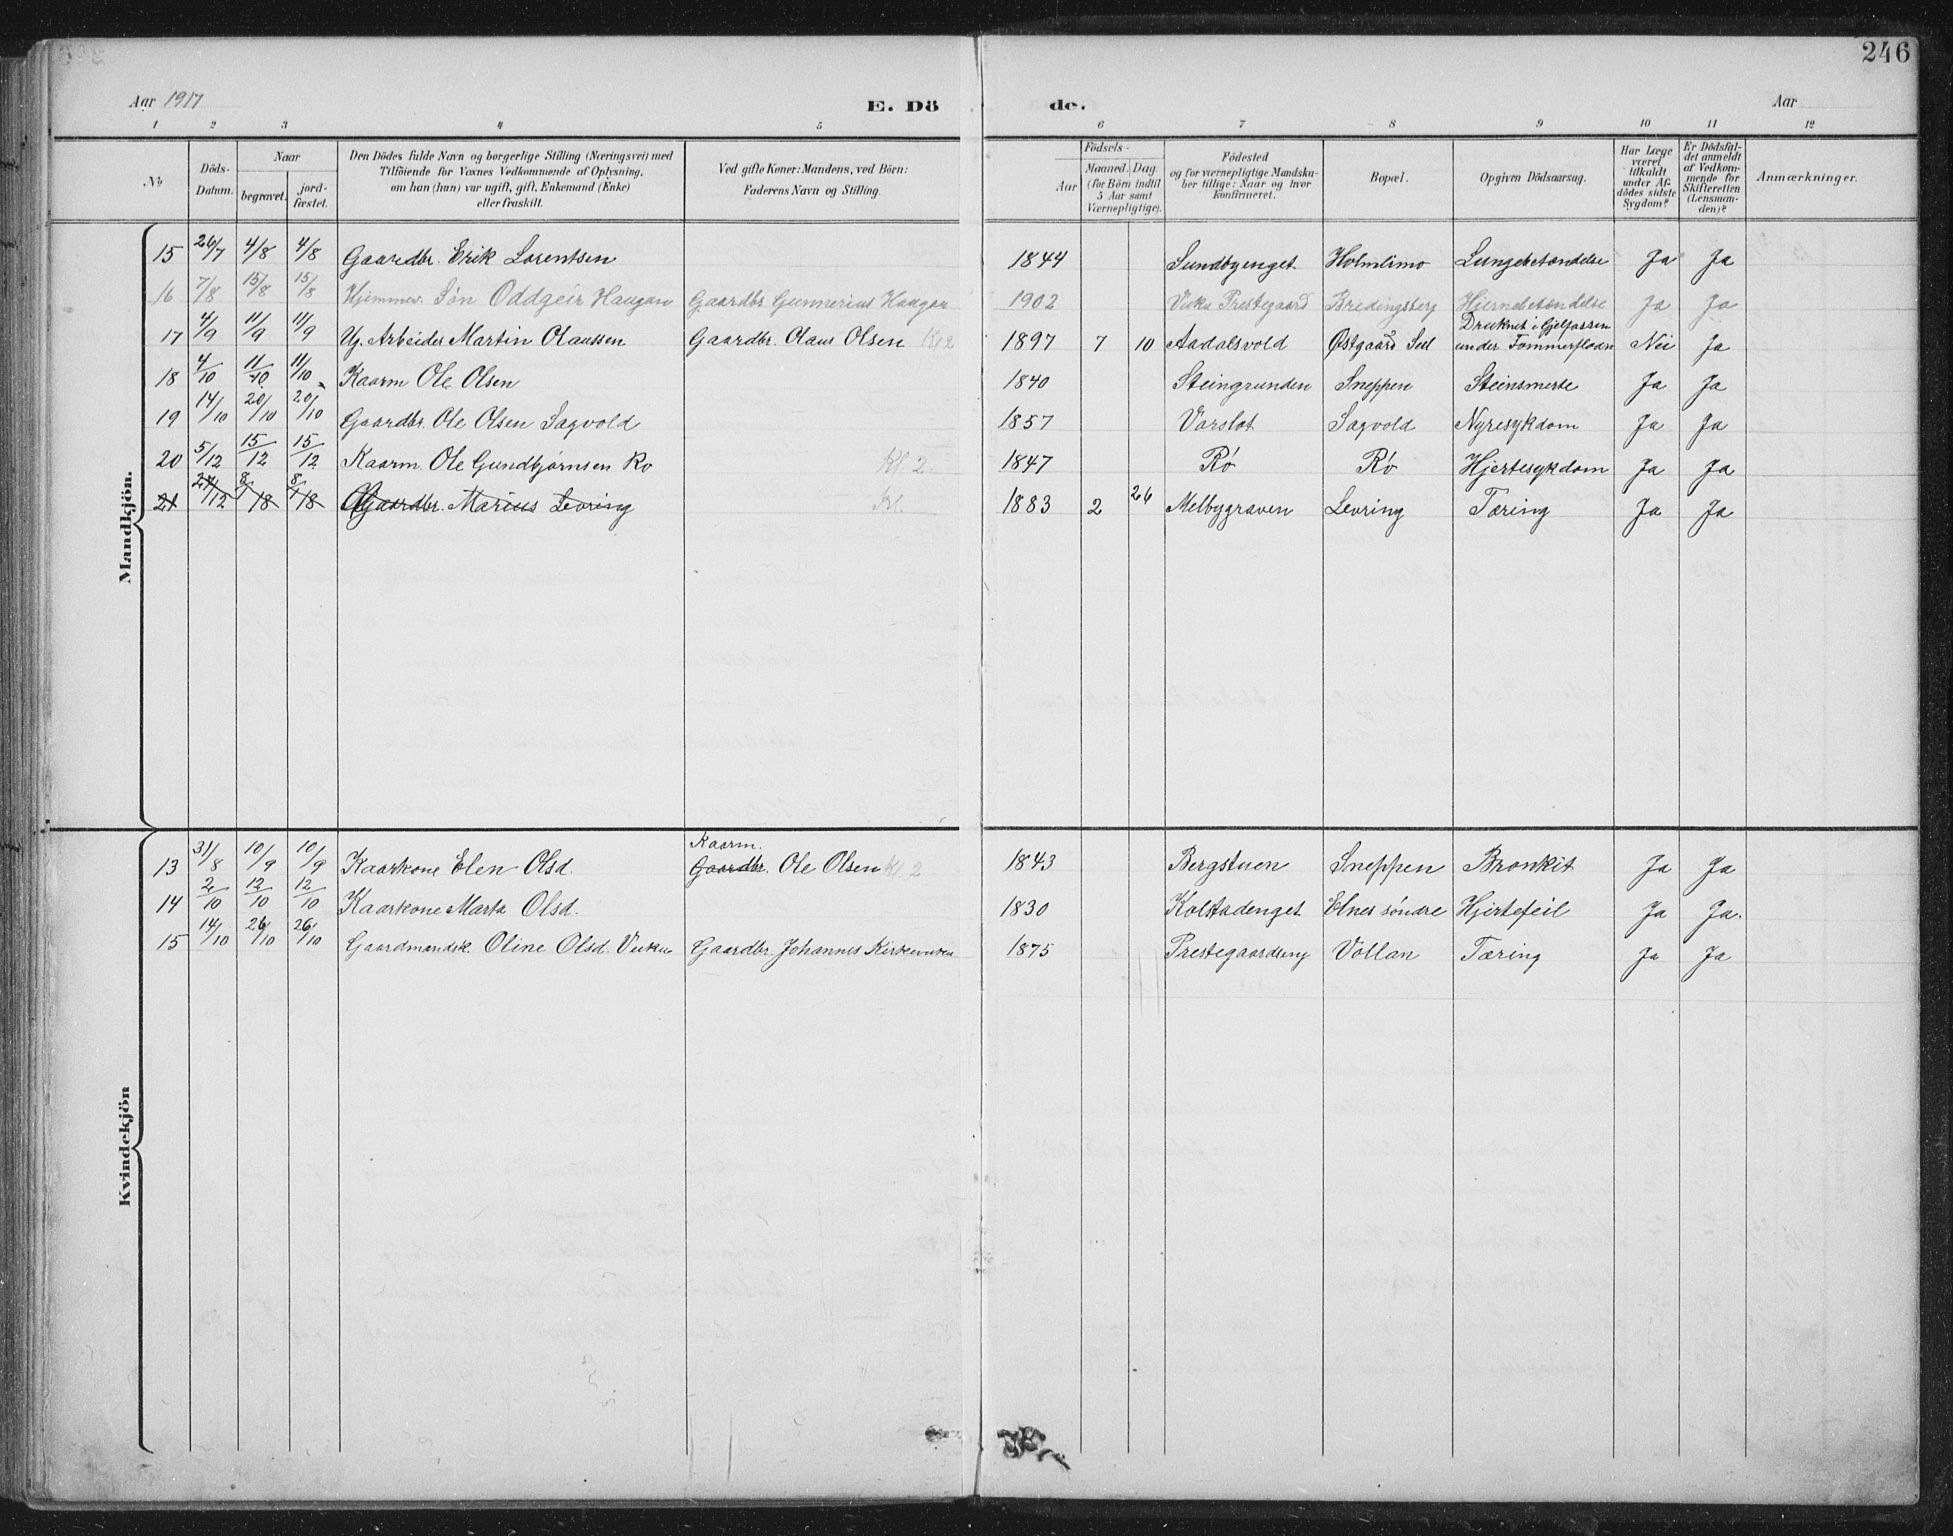 246
Aar 1917 E. Dö de. Aar
1 2 3 4 5 6 7 8 9 10 11 12
No Döds-Datum. Naar begravet. jordfæstet. Den Dödes fulde Navn og borgerlige Stilling (Næringsvei) med Tilföiende for Voxnes Vedkommende af Oplysning, om han (hun) var ugift, gift, Enkemand (Enke) eller fraskilt. Ved gifte Koner: Mandens, ved Börn: Faderens Navn og Stilling. Födsels- Aar Maaned. Dag. (for Börn indtil 5 Aar samt Værnepligtige). Födested og for værnepligtige Mandskaber tillige: Naar og hvor konfirmeret. Bopæl. Opgiven Dödsaarsag. Har Læge været tilkaldt under Afdödes sidste Sygdom? Er Dödsfaldet anmeldt af Vedkommende for Skifteretten (Lensmanden)? Anmærkninger.
Mandkjön.
15 26/7 4/8 4/8 Gaardbr. Erik Lorentsen 1844 Sundbyenget Holmlimo Lungebetændelse Ja Ja
16 7/8 15/8 15/8 Hjemmev. Søn Oddgeir Haugan Gaardbr. Gunnerius Haugan 1902 Vuku Prestegaard Bredingsberg Hjernebetændelse Ja Ja
17 4/9 11/9 11/9 Ug. Arbeider Martin Olaussen Gaardbr. Olaus Olsen Kl 2 1897 7 10 Aadalsvold Østgaard Sul Druknet i Gjelfossen under Tømmerfløtn Nei Ja
18 4/10 11/10 11/10 Kaarm Ole Olsen 1840 Steingrunden Sneppen Steinsmerte Ja Ja
19 14/10 20/10 20/10 Gaardbr. Ole Olsen Sagvold 1857 Vorslot Sagvold Nyresykdom Ja Ja
20 5/12 15/12 15/12 Kaarm. Ole Gundbjørnsen Ro Kl 2. 1847 Rø Rø Hjertesykdom Ja Ja
21 27/12 8/1 18 8/1 18 Gaardbr. Marius Levring Kl. 1883 2 26 Melbygraven Levring Tæring Ja Ja
Kvindekjön
13 31/8 10/9 10/9 Kaarkone Elen Olsd. Kaarm. Gaardbr. Ole Olsen Kl 2 1843 Bergstuen Sneppen Bronkit Ja Ja
14 2/10 12/10 12/10 Kaarkone Marta Olsd. 1830 Kolstadenget Elnes søndre Hjertefeil Ja Ja.
15 14/10 26/10 26/10 Gaardmandsk. Oline Olsd. Vuku Gaardbr. Johannes Kirkevuku 1875 Prestegaardseng Vollan Tæring Ja Ja